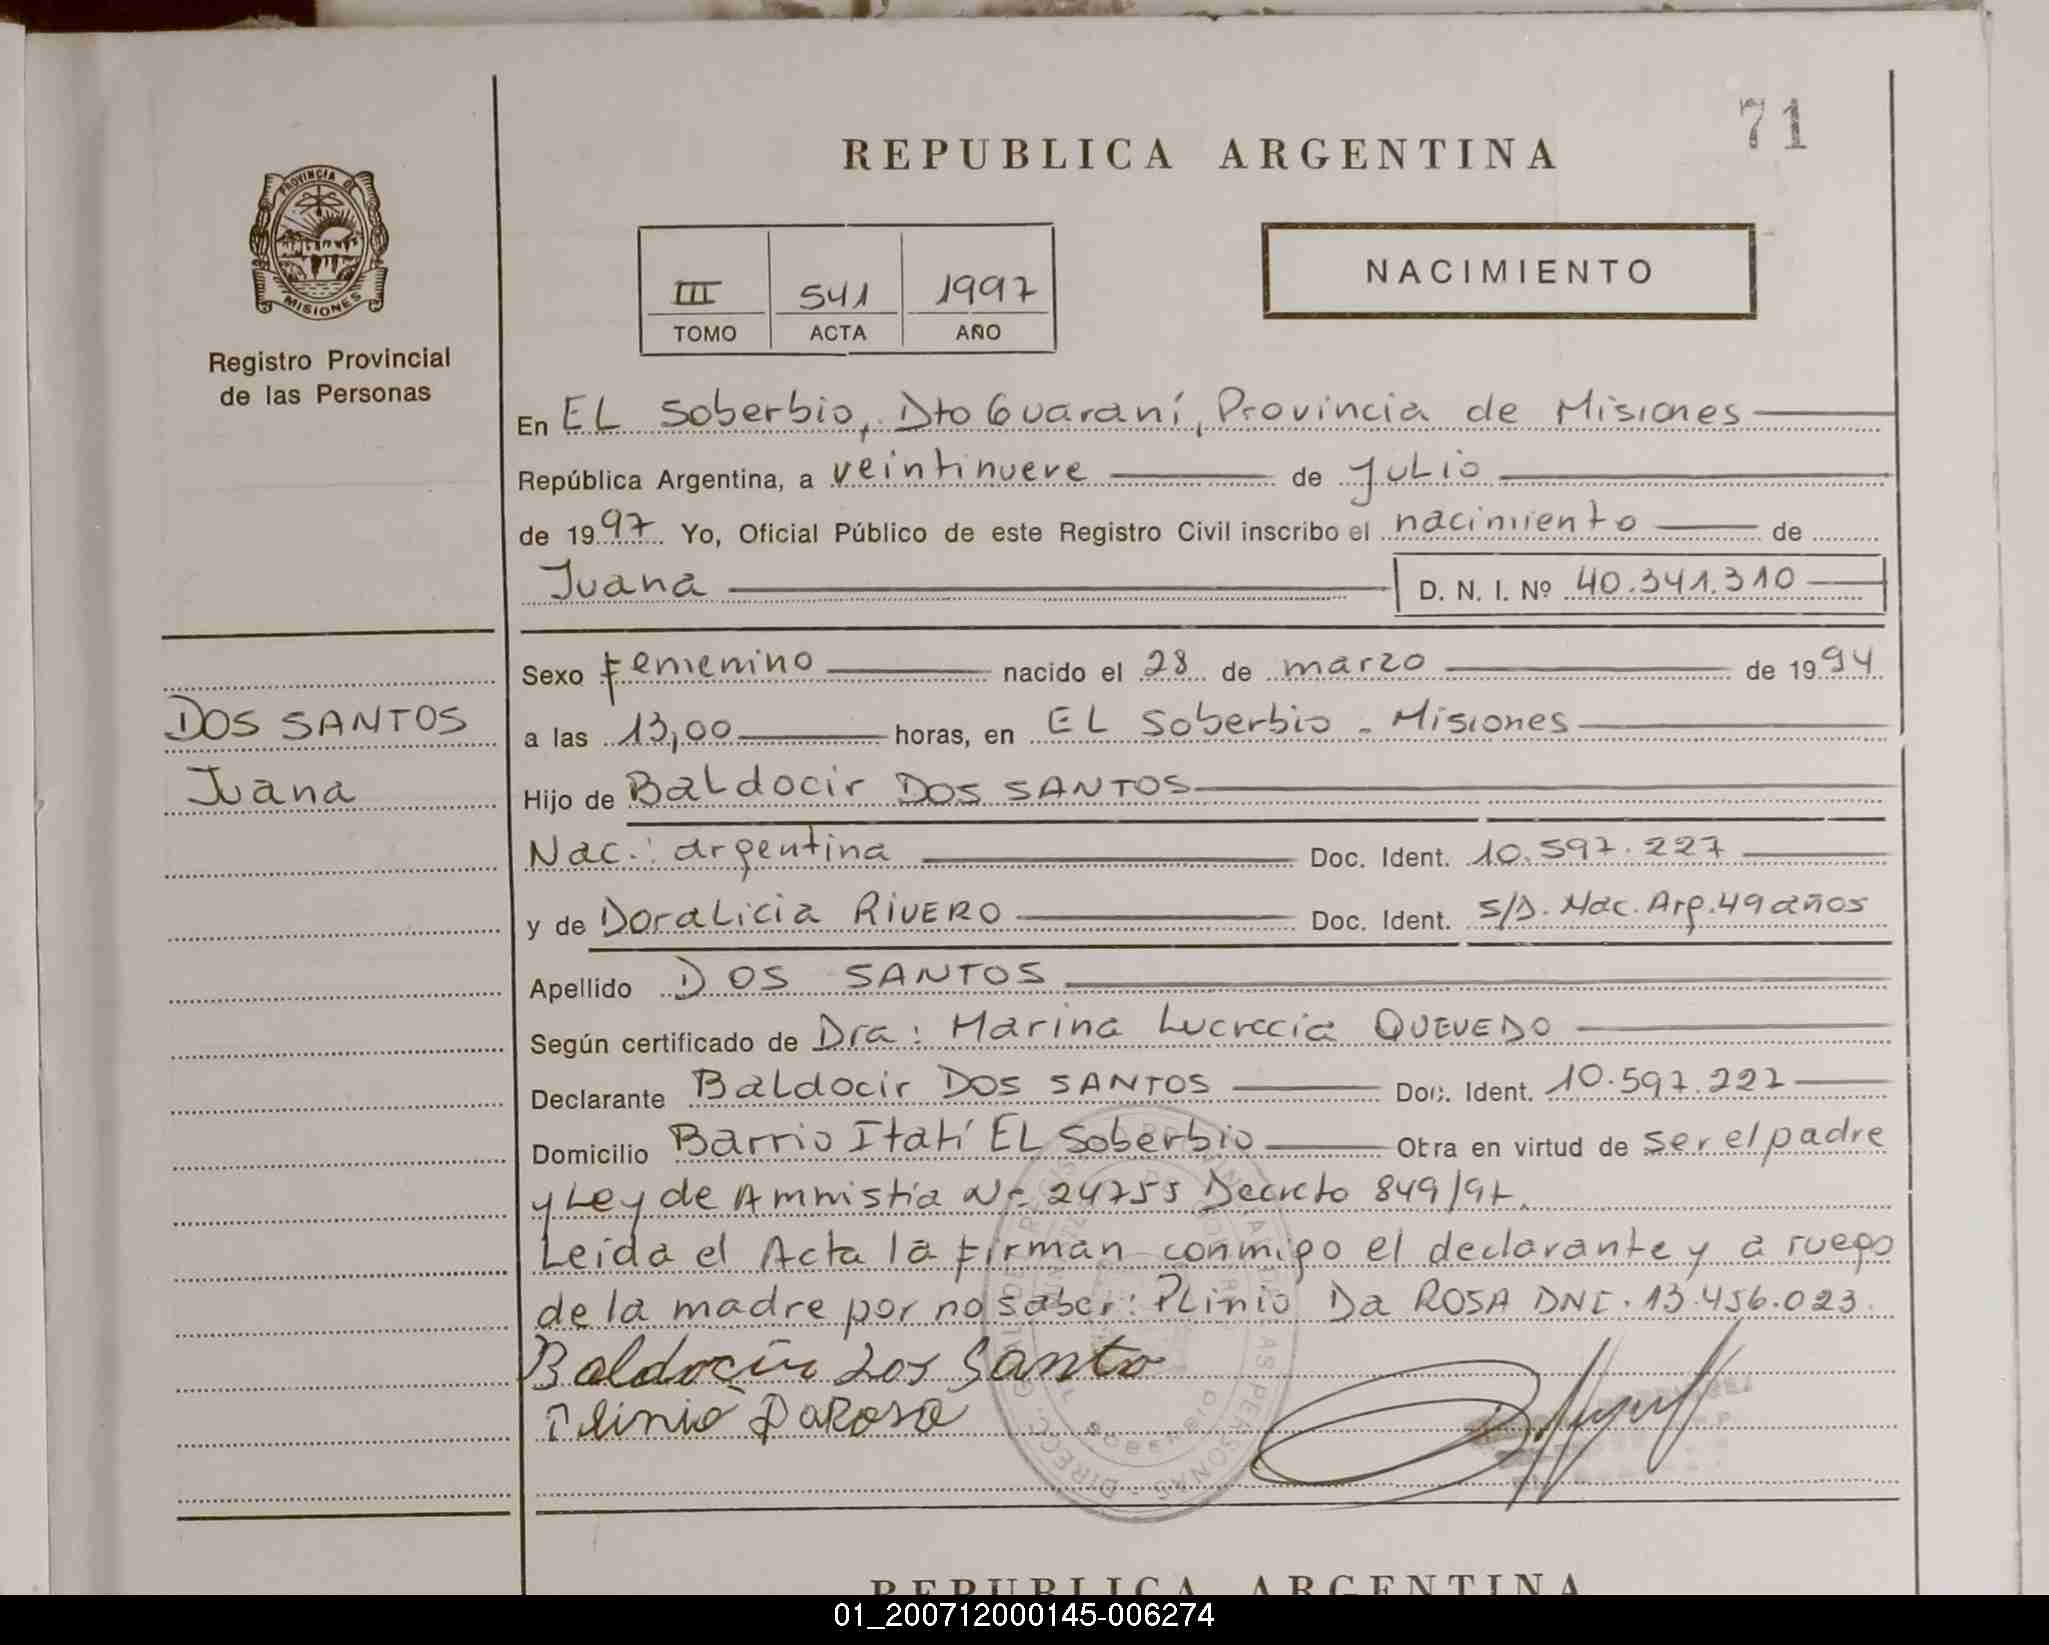 71
REPUBLICA ARGENTINA
PROVINCIA DE
MISIONES
Registro Provincial
de las Personas
III 541 1997
TOMO ACTA AÑO
NACIMIENTO
En EL Soberbio, Dto Guaraní, Provincia de Misiones
República Argentina, a veintinueve de Julio
de 1997 Yo, Oficial Público de este Registro Civil inscribo el nacimiento de
Juana D. N. I. Nº 40.341.310
Sexo Femenino nacido el 28 de marzo de 1994
DOS SANTOS
Juana
a las 13,00 horas, en EL Soberbio - Misiones
Hijo de Baldocir DOS SANTOS
Nac.: argentina Doc. Ident. 10.597.227
y de Doralicia RIVERO Doc. Ident. S/D. Nac. Arg. 49 años
Apellido DOS SANTOS
Según certificado de Dra: Marina Lucrecia QUEVEDO
Declarante Baldocir DOS SANTOS Doc. Ident. 10.597.227
Domicilio Barrio Itatí EL Soberbio Otra en virtud de ser el padre
y Ley de Amnistia Nº 24755 Decreto 849/97.
Leida el Acta la firman conmigo el declarante y a ruego
de la madre por no saber: PLinio Da ROSA DNI. 13.456.023.
Baldocir Dos Santo
Plinio DaRosa
SOBERBIO
REPUBLICA ARGENTINA
01_200712000145-006274